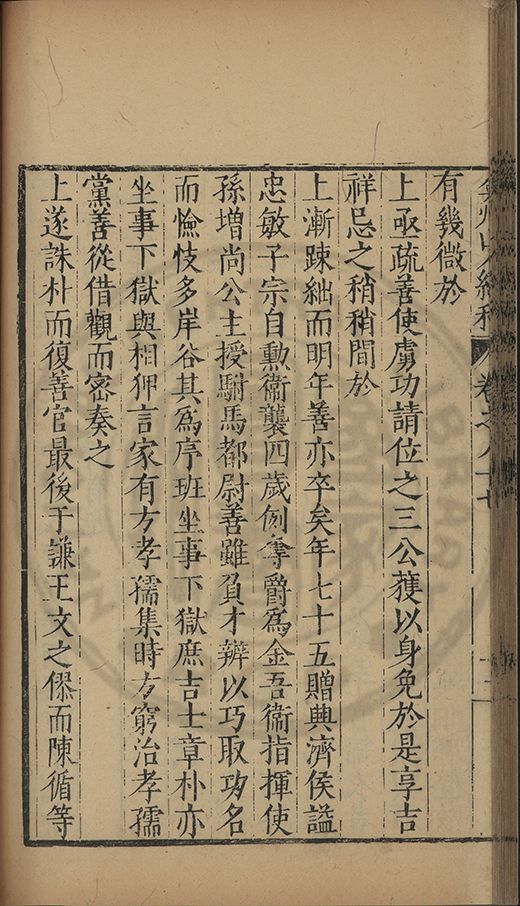 弇州山人續稿 卷之八十七
有幾微於
上亟疏善使虜功請位之三公獲以身免於是享吉
祥忌之稍稍間於
上漸踈絀而明年善亦卒矣年七十五贈興濟侯謚
忠敏子宗自勳衞襲四歲例奪爵爲金吾衞指揮使
孫增尚公主授駙馬都尉善雖負才辨以巧取功名
而憸忮多岸谷其爲序班坐事下獄庶吉士章朴亦
坐事下獄與相狎言家有方孝孺集時方窮治孝孺
黨善從借觀而密奏之
上遂誅朴而復善官最後于謙王文之僇而陳循等